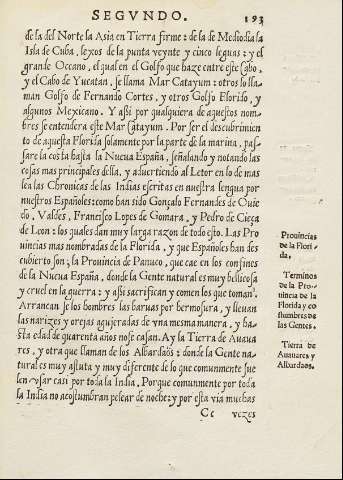 SEGVNDO. 193
de la del Norte la Asia en Tierra firme: de la de Mediodia la
Isla de Cuba, lexos de la punta veynte y cinco leguas: y el
grande Occano, el qual en el Golfo que haze entre este Cabo,
y el Cabo de Yucatan, se llama Mar Catayum: otros lo lla-
man Golfo de Fernando Cortes, y otros Golfo Florido, y
algunos Mexicano. Y assi por qualquiera de aquestos nom-
bres se entendera este Mar Catayum. Por ser el descubrimien-
to de aquesta Florida solamente por la parte de la marina, pas-
sare la costa hasta la Nueua España, señalando y notando las
cosas mas principales della, y aduertiendo al Letor en lo de mas
lea las Chronicas de las Indias escritas en nuestra lengua por
nuestros Españoles: como han sido Gonçalo Fernandes de Ouie
do, Valdes, Francisco Lopes de Gomara, y Pedro de Cieça
de Leon: los quales dan muy larga razon de todo esto. Las Pro
uincias mas nombradas de la Florida, y que Españoles han des
cubierto son; la Prouincia de Panuco, que cae en los confines
de la Nueua España, donde la Gente natural es muy bellicosa
y cruel en la guerra: y assi sacrifican y comen los que toman.
Arrancanse los hombres las baruas por hermosura, y lleuan
las narizes y orejas agujeradas de vna mesma manera, y ha-
sta edad de quarenta años no se casan. Ay la Tierra de Auaua
res, y otra que llaman de los Albardaös: donde la Gente na-
tural es muy astuta y muy diferente de lo que comunmente sue
len vsar casi por toda la India. Porque comunmente por toda
la India no acostumbran pelear de noche: y por esta via muchas
Cc vezes
Prouincias
de la Flori-
da.
Terminos
de la Pro-
uincia de la
Florida y co
stumbres de
las Gentes.
Tierra de
Auauares y
Albardaos.